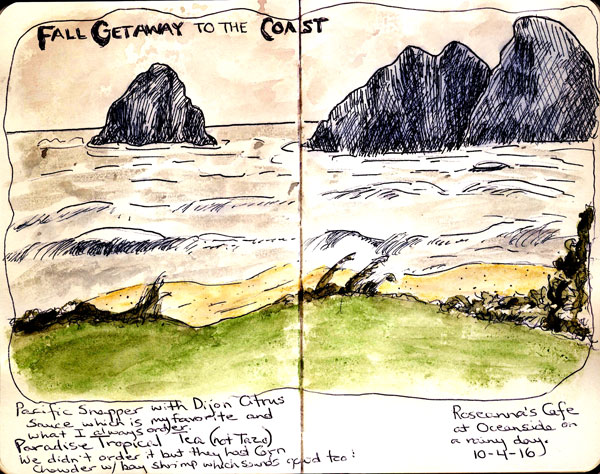 FALL GETAWAY TO THE COAST
Pacific Snapper with Dijon Citrus
Sauce which is my favorite and
what I always order.
Paradise Tropical Tea (not Tazo)
We didn't order it but they had Corn
Chowder w/ bay shrimp which sounds good too!
Roseanna's Cafe
at Oceanside on
a rainy day.
10-4-16